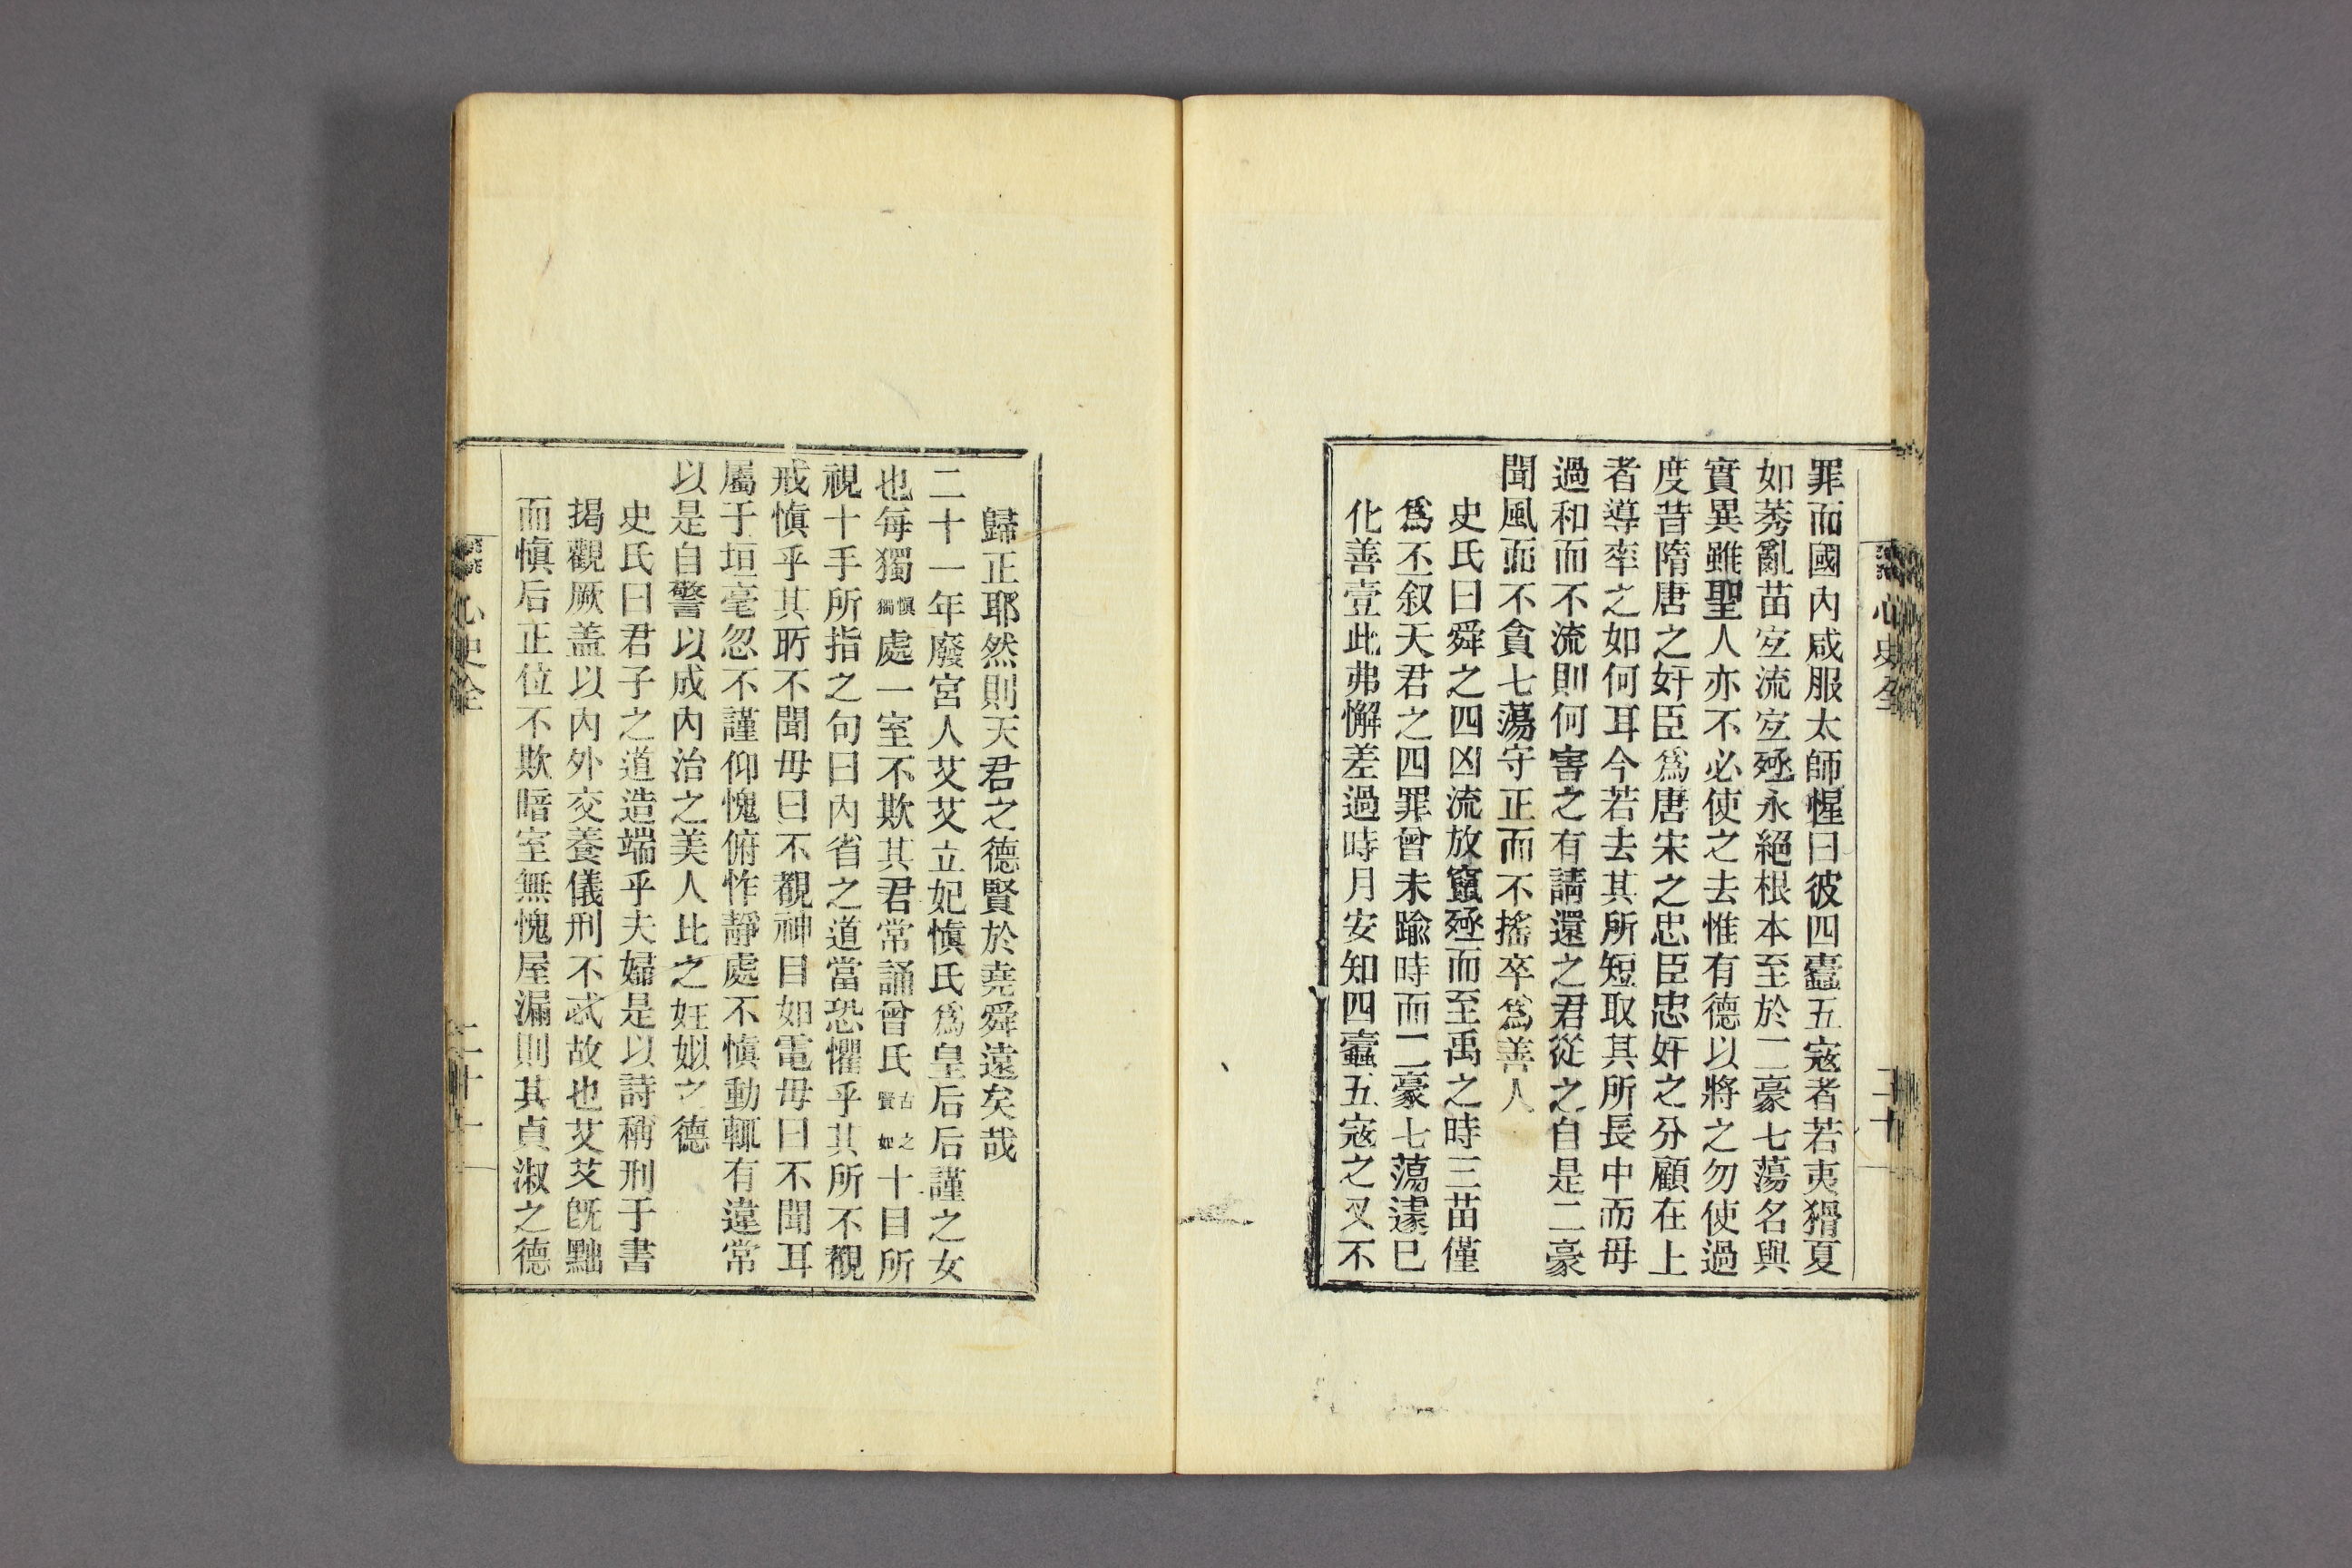 心史全
二十
罪而國內咸服太師惺曰彼四蠹五寇者若夷猾夏
如莠亂苗宐流宐殛永絕根本至於二豪七蕩名與
實異雖聖人亦不必使之去惟有德以將之勿使過
度昔隋唐之奸臣爲唐宋之忠臣忠奸之分顧在上
者導率之如何耳今若去其所短取其所長中而毋
過和而不流則何害之有請還之君從之自是二豪
聞風而不貪七蕩守正而不搖卒爲善人
史氏曰舜之四凶流放竄殛而至禹之時三苗僅
爲丕叙天君之四罪曾未踰時而二豪七蕩遽已
化善壹此弗懈差過時月安知四蠹五寇之又不
歸正耶然則天君之德賢於堯舜遠矣哉
二十一年廢宮人艾艾立妃愼氏爲皇后后謹之女
也每獨愼獨處一室不欺其君常誦曾氏古之賢妃十目所
視十手所指之句曰內省之道當恐懼乎其所不覩
戒愼乎其所不聞毋曰不覩神目如電毋曰不聞耳
屬于垣毫忽不謹仰愧俯怍靜處不愼動輒有違常
以是自警以成內治之美人比之妊姒之德
史氏曰君子之道造端乎夫婦是以詩稱刑于書
揭觀厥盖以內外交養儀刑不忒故也艾艾旣黜
而愼后正位不欺暗室無愧屋漏則其貞淑之德
心史全
二十一